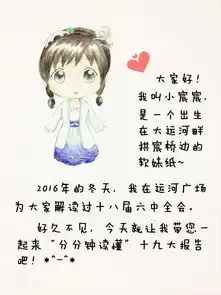 大家好！
我叫小宸宸，
是一个出生
在大运河畔
拱宸桥边的
软妹纸~
2016年的冬天，我在运河广场
为大家解读过十八届六中全会。
好久不见，今天就让我带您一
起来“分分钟读懂”十九大报告
吧！*^-^*